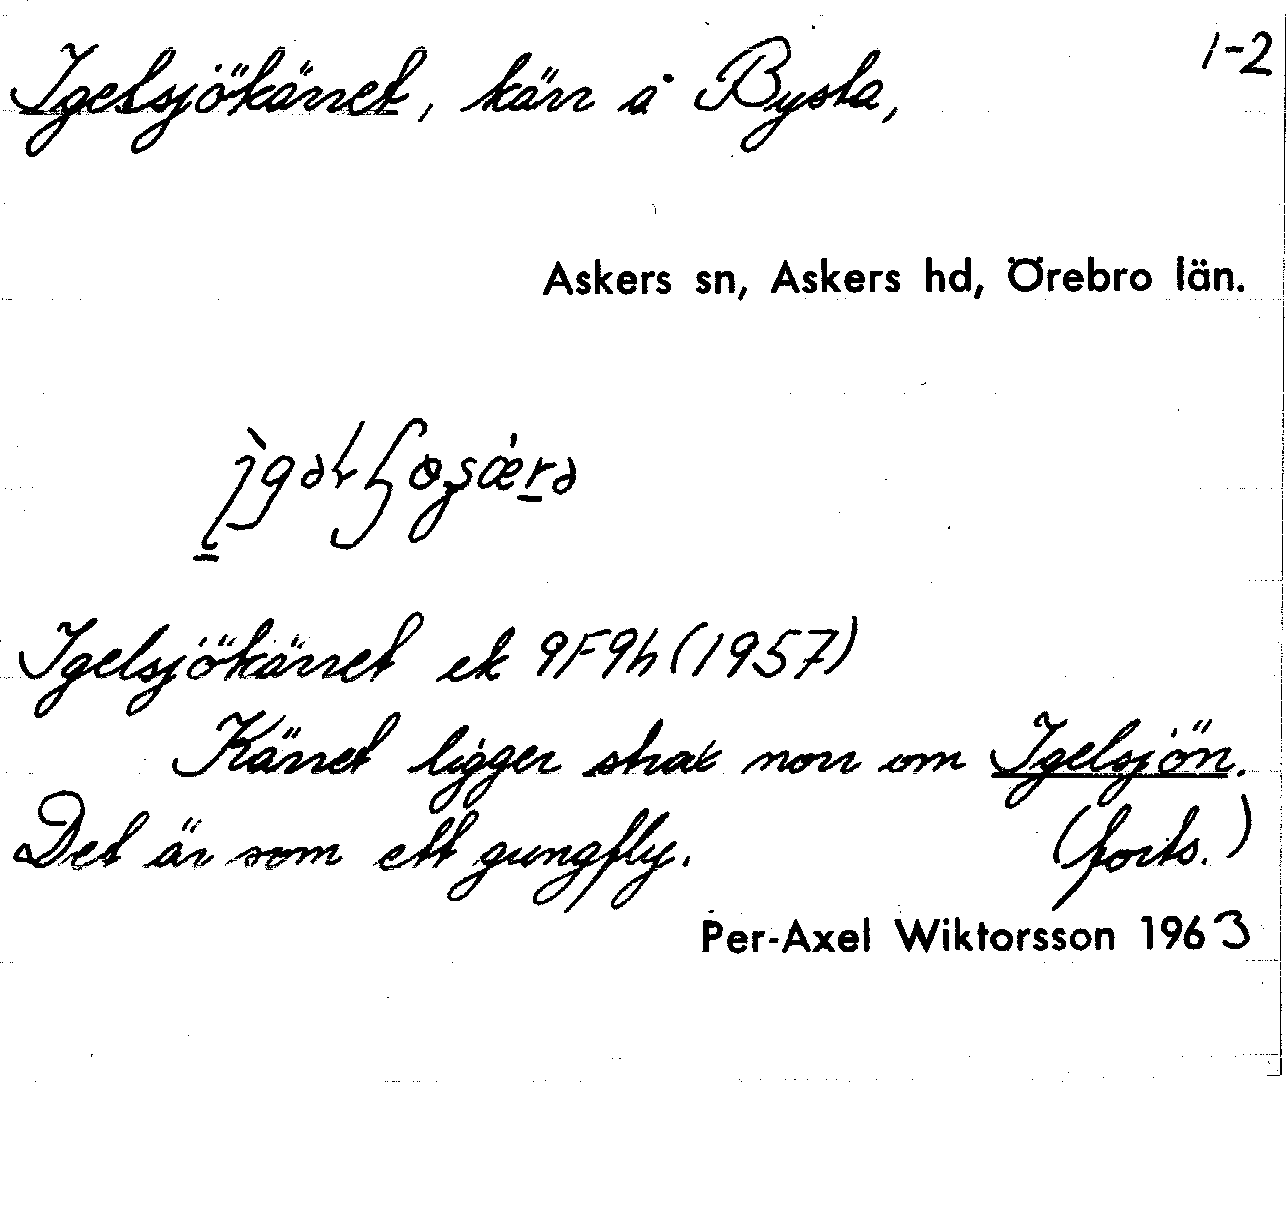 Igelsjökärret, kärr å Bysta, 1-2
Askers sn, Askers hd, Örebro län.
Igelsjökärret ek 9F9h (1957)
Kärret ligger strax norr om Igelsjön.
Det är som ett gungfly. (forts.)
Per-Axel Wiktorsson 1963